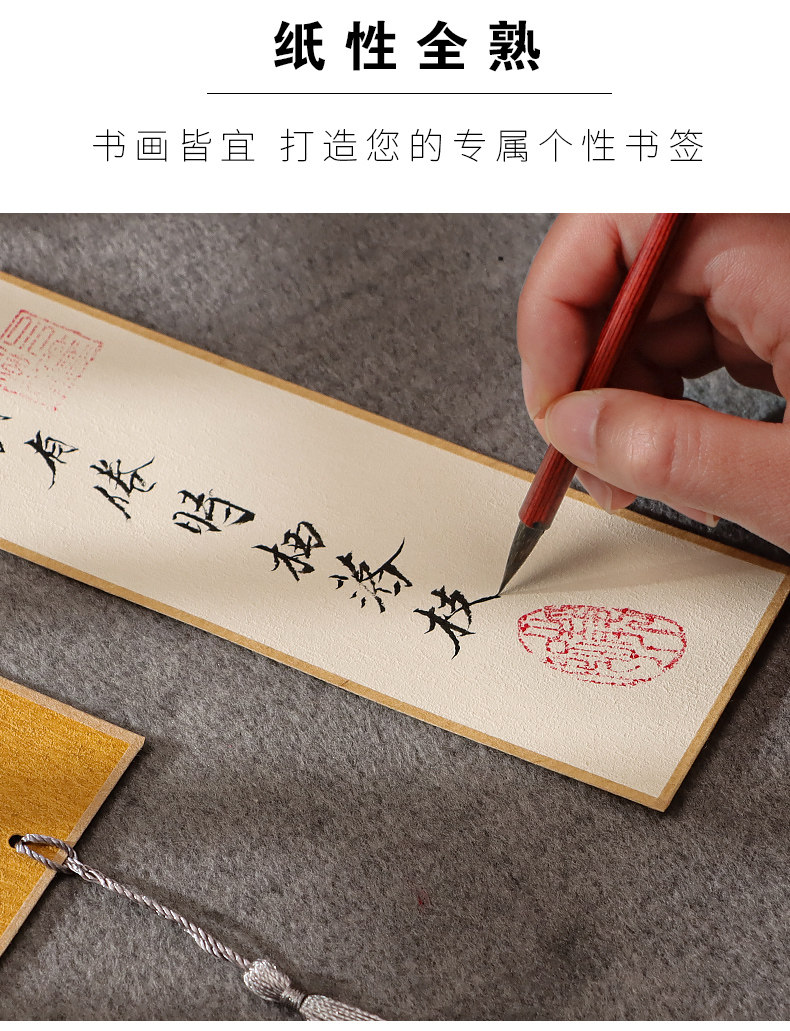 纸性全熟
书画皆宜 打造您的专属个性书签
有倦時栖落枝